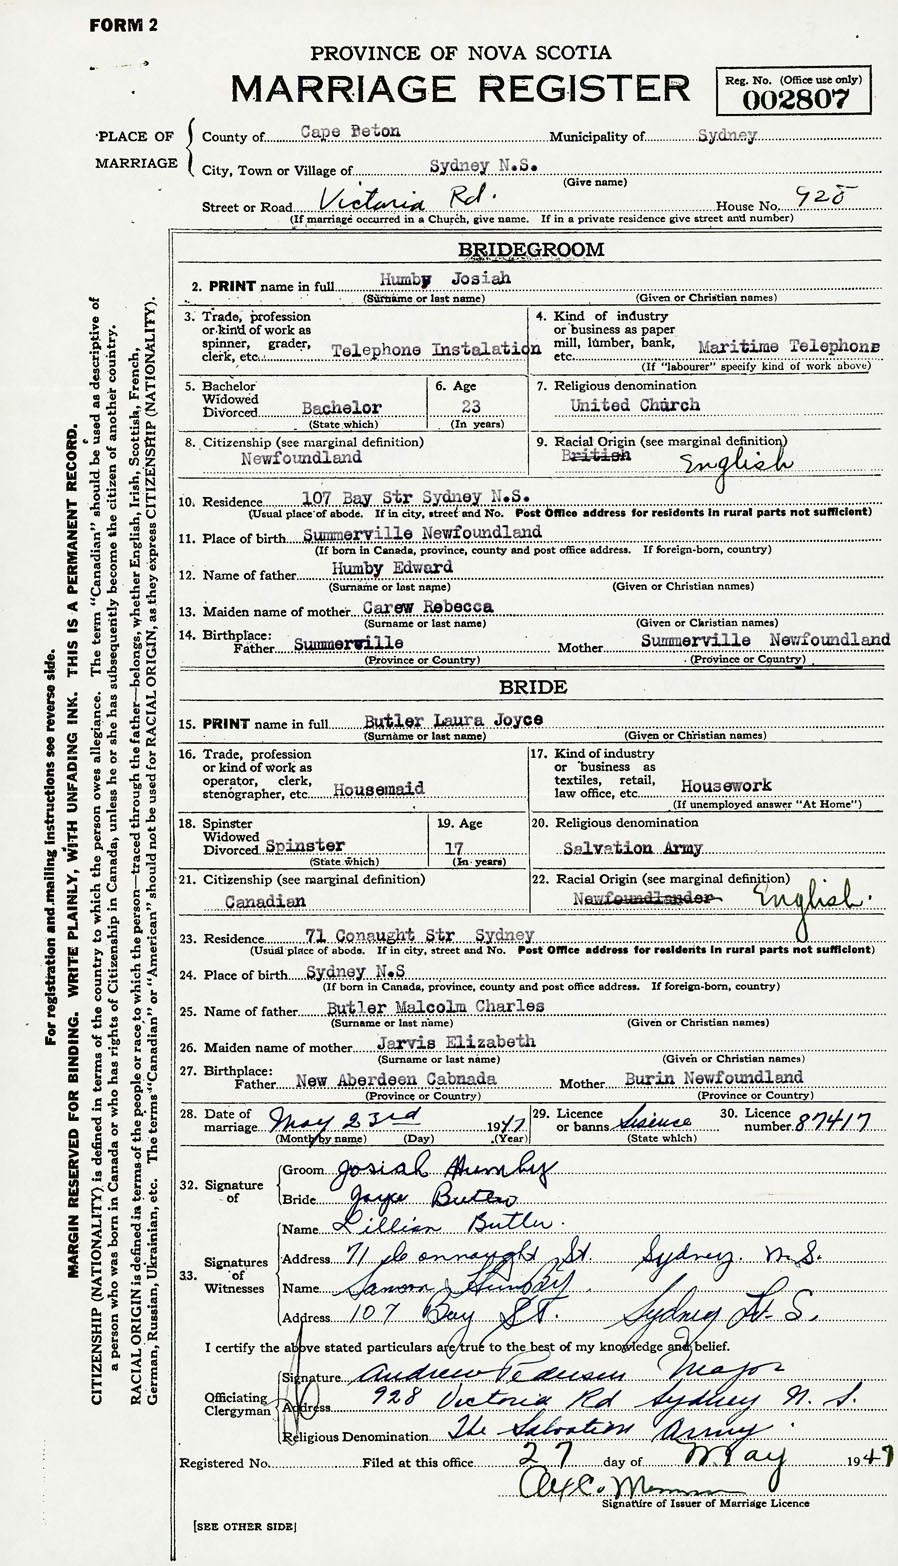 FORM 2
PROVINCE OF NOVA SCOTIA
MARRIAGE REGISTER
Reg. No. (Office use only)
002807
PLACE OF MARRIAGE
County of Cape Beton Municipality of Sydney
City, Town or Village of Sydney N.S.
(Give name)
Street or Road Victoria Rd. House No. 928
(If marriage occurred in a Church, give name. If in a private residence give street and number)
BRIDEGROOM
2. PRINT name in full Humby Josiah
(Surname or last name) (Given or Christian names)
3. Trade, profession or kind of work as spinner, grader, clerk, etc. Telephone Instalation
4. Kind of industry or business as paper mill, lumber, bank, etc. Maritime Telephone
(If "labourer" specify kind of work above)
5. Bachelor Widowed Divorced Bachelor
(State which)
6. Age 23
(In years)
7. Religious denomination
United Church
8. Citizenship (see marginal definition)
Newfoundland
9. Racial Origin (see marginal definition)
British English
10. Residence 107 Bay Str Sydney N.S.
(Usual place of abode. If in city, street and No. Post Office address for residents in rural parts not sufficient)
11. Place of birth Summerville Newfoundland
(If born in Canada, province, county and post office address. If foreign-born, country)
12. Name of father Humby Edward
(Surname or last name) (Given or Christian names)
13. Maiden name of mother Carew Rebecca
(Surname or last name) (Given or Christian names)
14. Birthplace:
Father Summerville Mother Summerville Newfoundland
(Province or Country) (Province or Country)
BRIDE
15. PRINT name in full Butler Laura Joyce
(Surname or last name) (Given or Christian names)
16. Trade, profession or kind of work as operator, clerk, stenographer, etc. Housemaid
17. Kind of industry or business as textiles, retail, law office, etc. Housework
(If unemployed answer "At Home")
18. Spinster Widowed Divorced Spinster
(State which)
19. Age 17
(In years)
20. Religious denomination
Salvation Army
21. Citizenship (see marginal definition)
Canadian
22. Racial Origin (see marginal definition)
Newfoundlander English.
23. Residence 71 Conaught Str Sydney
(Usual place of abode. If in city, street and No. Post Office address for residents in rural parts not sufficient)
24. Place of birth Sydney N.S
(If born in Canada, province, county and post office address. If foreign-born, country)
25. Name of father Butler Malcolm Charles
(Surname or last name) (Given or Christian names)
26. Maiden name of mother Jarvis Elizabeth
(Surname or last name) (Given or Christian names)
27. Birthplace:
Father New Aberdeen Cabnada Mother Burin Newfoundland
(Province or Country) (Province or Country)
28. Date of marriage May 23rd 1947
(Month by name) (Day) (Year)
29. Licence or banns
(State which)
30. Licence number 87417
32. Signature of
Groom Josiah Humby
Bride Joyce Butler
33. Signatures of Witnesses
Name Lillian Butler.
Address 71 Connaught St. Sydney. N.S.
Name Humby
Address 107 Bay St. Sydney N.S.
I certify the above stated particulars are true to the best of my knowledge and belief.
Officiating Clergyman
Signature Andrew Pedersen Major
Address 928 Victoria Rd Sydney N.S.
Religious Denomination The Salvation Army.
Registered No. Filed at this office 27 day of May 1947
Signature of Issuer of Marriage Licence
[SEE OTHER SIDE]
For registration and mailing instructions see reverse side.
MARGIN RESERVED FOR BINDING. WRITE PLAINLY, WITH UNFADING INK. THIS IS A PERMANENT RECORD.
CITIZENSHIP (NATIONALITY) is defined in terms of the country to which the person owes allegiance. The term "Canadian" should be used as descriptive of
a person who was born in Canada or who has rights of Citizenship in Canada, unless he or she has subsequently become the citizen of another country.
RACIAL ORIGIN is defined in terms of the people or race to which the person—traced through the father—belongs, whether English, Irish, Scottish, French,
German, Russian, Ukrainian, etc. The terms "Canadian" or "American" should not be used for RACIAL ORIGIN, as they express CITIZENSHIP (NATIONALITY).